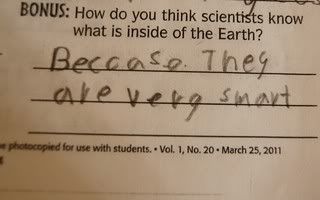 BONUS: How do you think scientists know
what is inside of the Earth?
Beccase. They
are very smart
photocopied for use with students. • Vol. 1, No. 20 • March 25, 2011